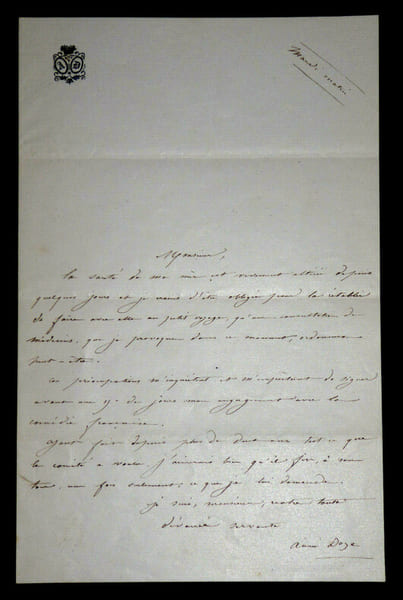 A D
Mardi matin
Monsieur,
La santé de ma mère est vivement altérée depuis
quelques jours et je viens d'être obligée pour la rétablir
de faire avec elle un petit voyage, qu'une consultation de
médecins, que je provoque dans ce moment, ordonnera
peut-être.
ces préoccupations m'inquiètent et m'empêchent de signer
avant une de jours mon engagement avec la
comédie française.
ayant fait depuis plus de huit ans tout ce que
le comité a voulu j'aimerais bien qu'il fît, à son
tour, une fois seulement, ce que je lui demande.
je suis, monsieur, votre toute
dévouée servante
Doze